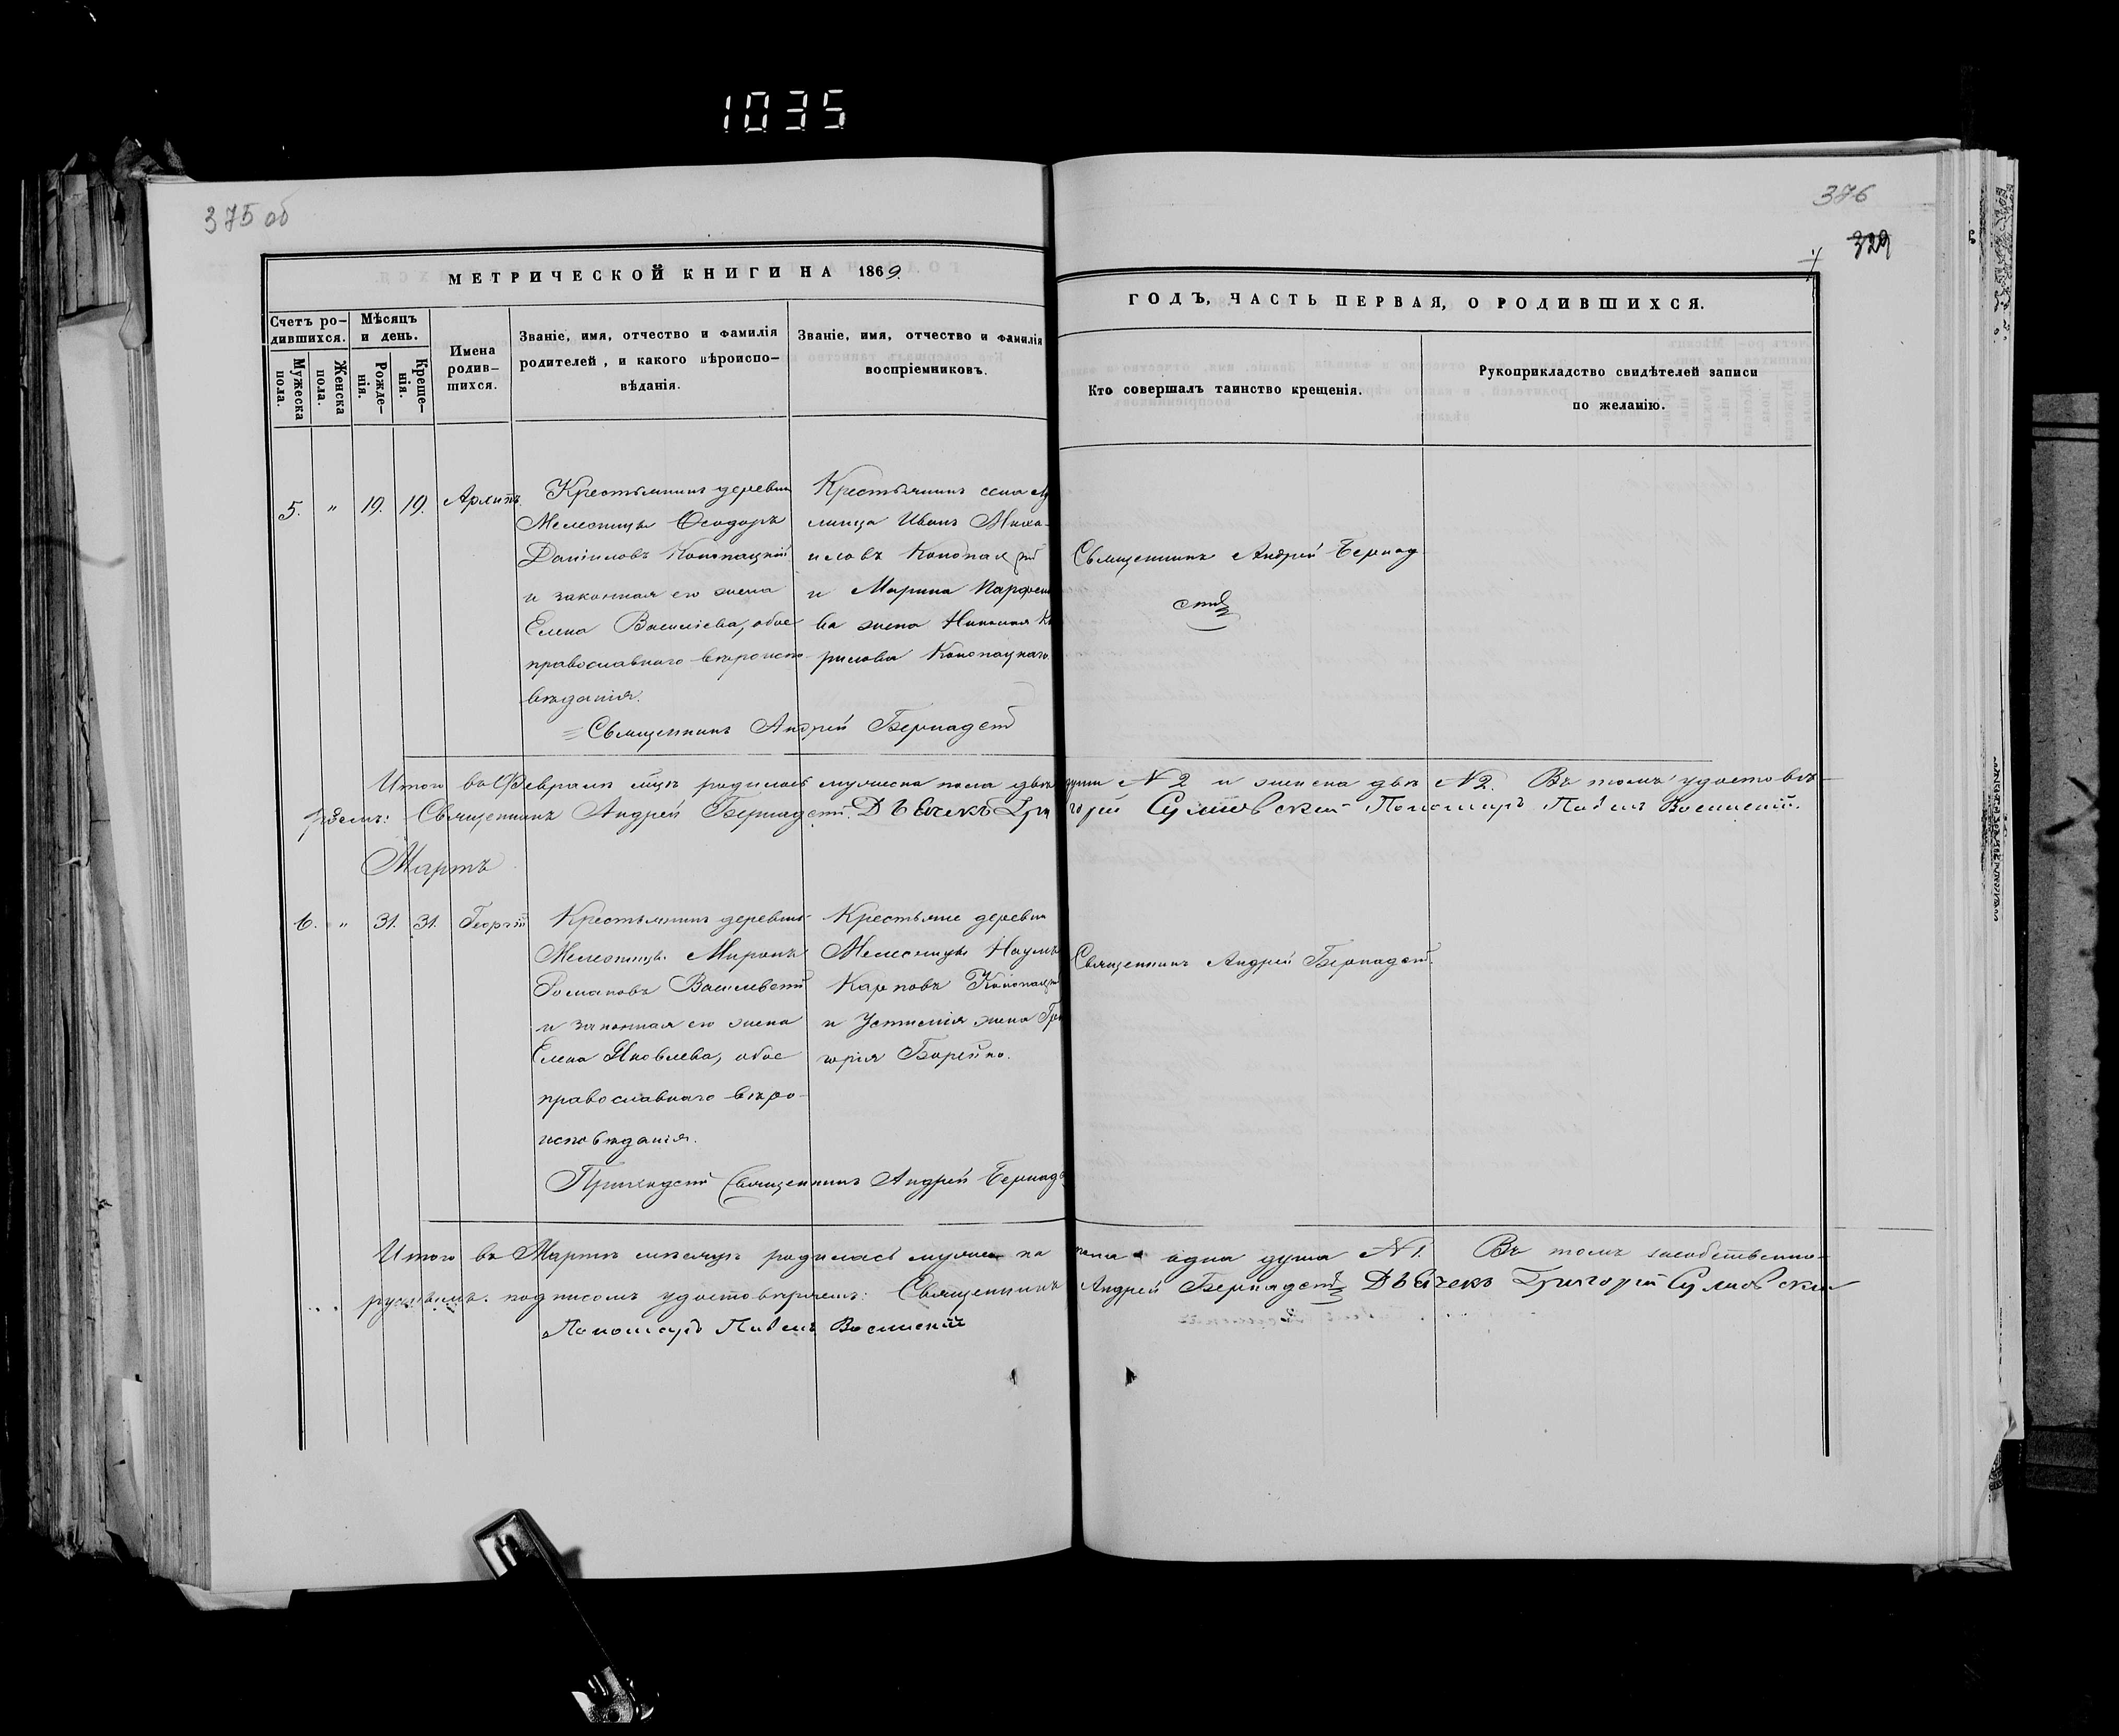 1035
375 об
376
329
МЕТРИЧЕСКОЙ КНИГИ НА 1869.
ГОДЪ, ЧАСТЬ ПЕРВАЯ, О РОДИВШИХСЯ.
Счетъ ро-
дившихся.
Мужеска
пола.
Женска
пола.
Мѣсяцъ
и день.
Рожде-
нія.
Креще-
нія.
Имена
родив-
шихся.
Званіе, имя, отчество и фамилія
родителей, и какого вѣроиспо-
вѣданія.
Званіе, имя, отчество и фамилія
воспріемниковъ.
Кто совершалъ таинство крещенія.
Рукоприкладство свидѣтелей записи
по желанію.
5. " 19. 19.
Крестьянинъ деревни
Ѳеодоръ
Даніиловъ Конопацкій
и законная его жена
Елена Василіева, обое
православнаго вѣроиспо-
вѣданія.
Крестьянинъ села
Иванъ Миха-
иловъ Конопацкій
и Марина Парфен
ва жена Николая Ки
рилова Конопацкаго.
Священникъ Андрей Бернад
стъ
Священникъ Андрей Бернадстъ
Итого въ Февралѣ мцѣ родилось мужеска пола двѣ души №2 и женска двѣ №2. Въ томъ удостовѣ-
ряемъ: Священникъ Андрей Бернадстъ. Дьячекъ Григорій Сулковскій Пономарь Павелъ
Мартъ
6. " 31. 31. Георгій
Крестьянинъ деревни
Миронъ
Романовъ
и законная его жена
Елена Яковлева, обое
православнаго вѣро-
исповѣданія.
Крестьяне деревни
Наумъ
Карповъ Конопацкій
и Устинія жена Гри
горія Борейко.
Священникъ Андрей Бернадстъ.
Священникъ Андрей Бернадс
Итого въ Мартѣ мѣсяцѣ родилась мужеска пола одна душа №1. Въ томъ собственно-
ручнымъ подписомъ удостовѣряемъ: Священникъ Андрей Бернадстъ Дьячекъ Григорій Сулковскій
Пономарь Павелъ